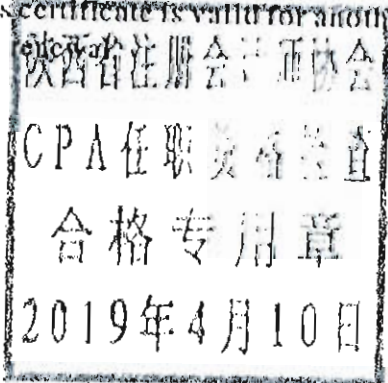 s certificate is valid for anoth
renewal
陕西省注册会计师协会
CPA任职资格检查
合格专用章
2019年4月10日